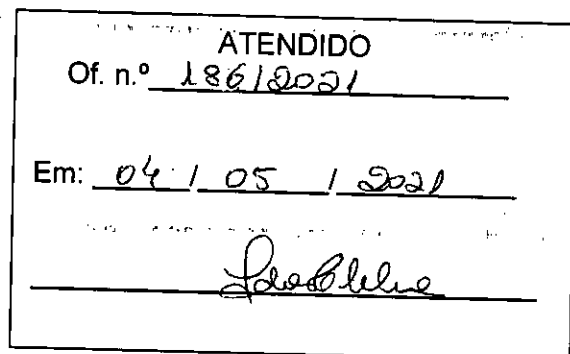 ATENDIDO
Of. n.º 186/2021
Em: 04 / 05 / 2021